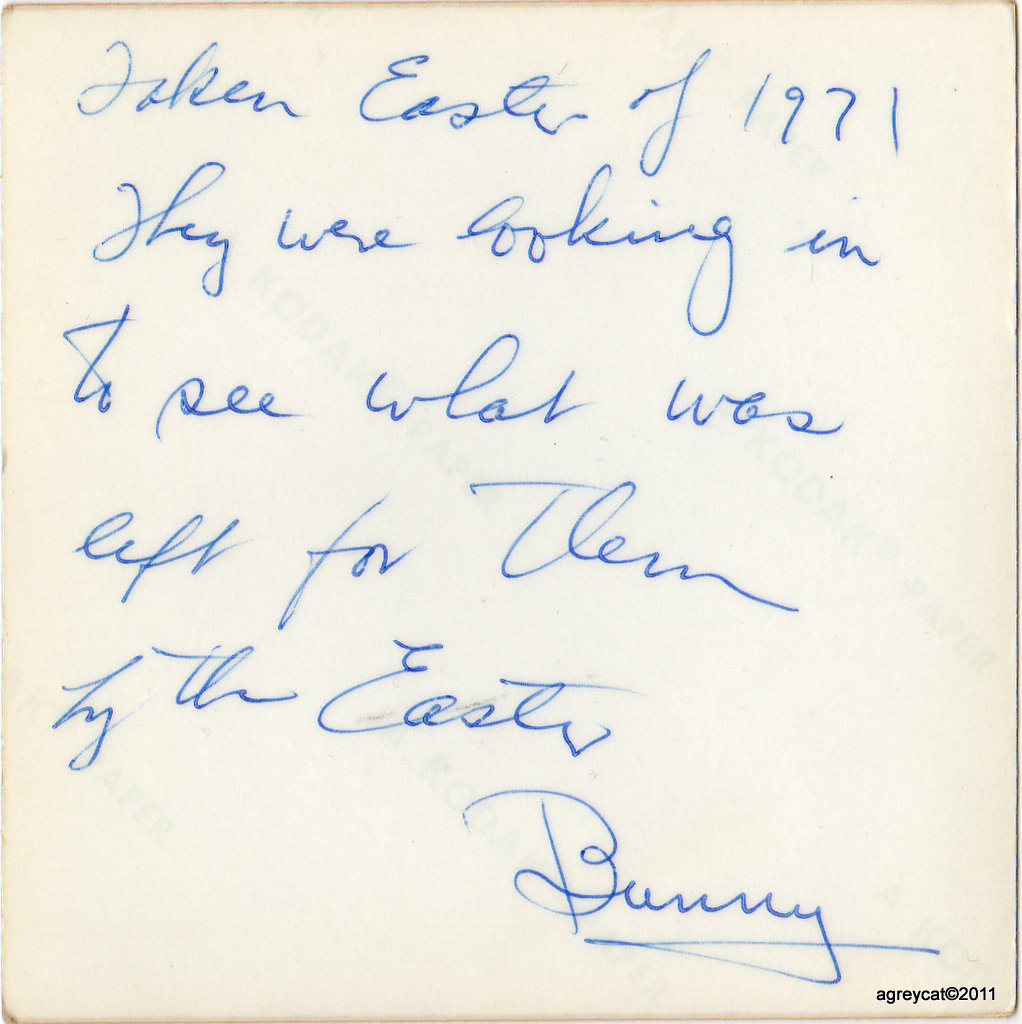 Taken Easter of 1971
They were looking in
to see what was
left for Them
by the Easter
Bunny
agreycat©2011